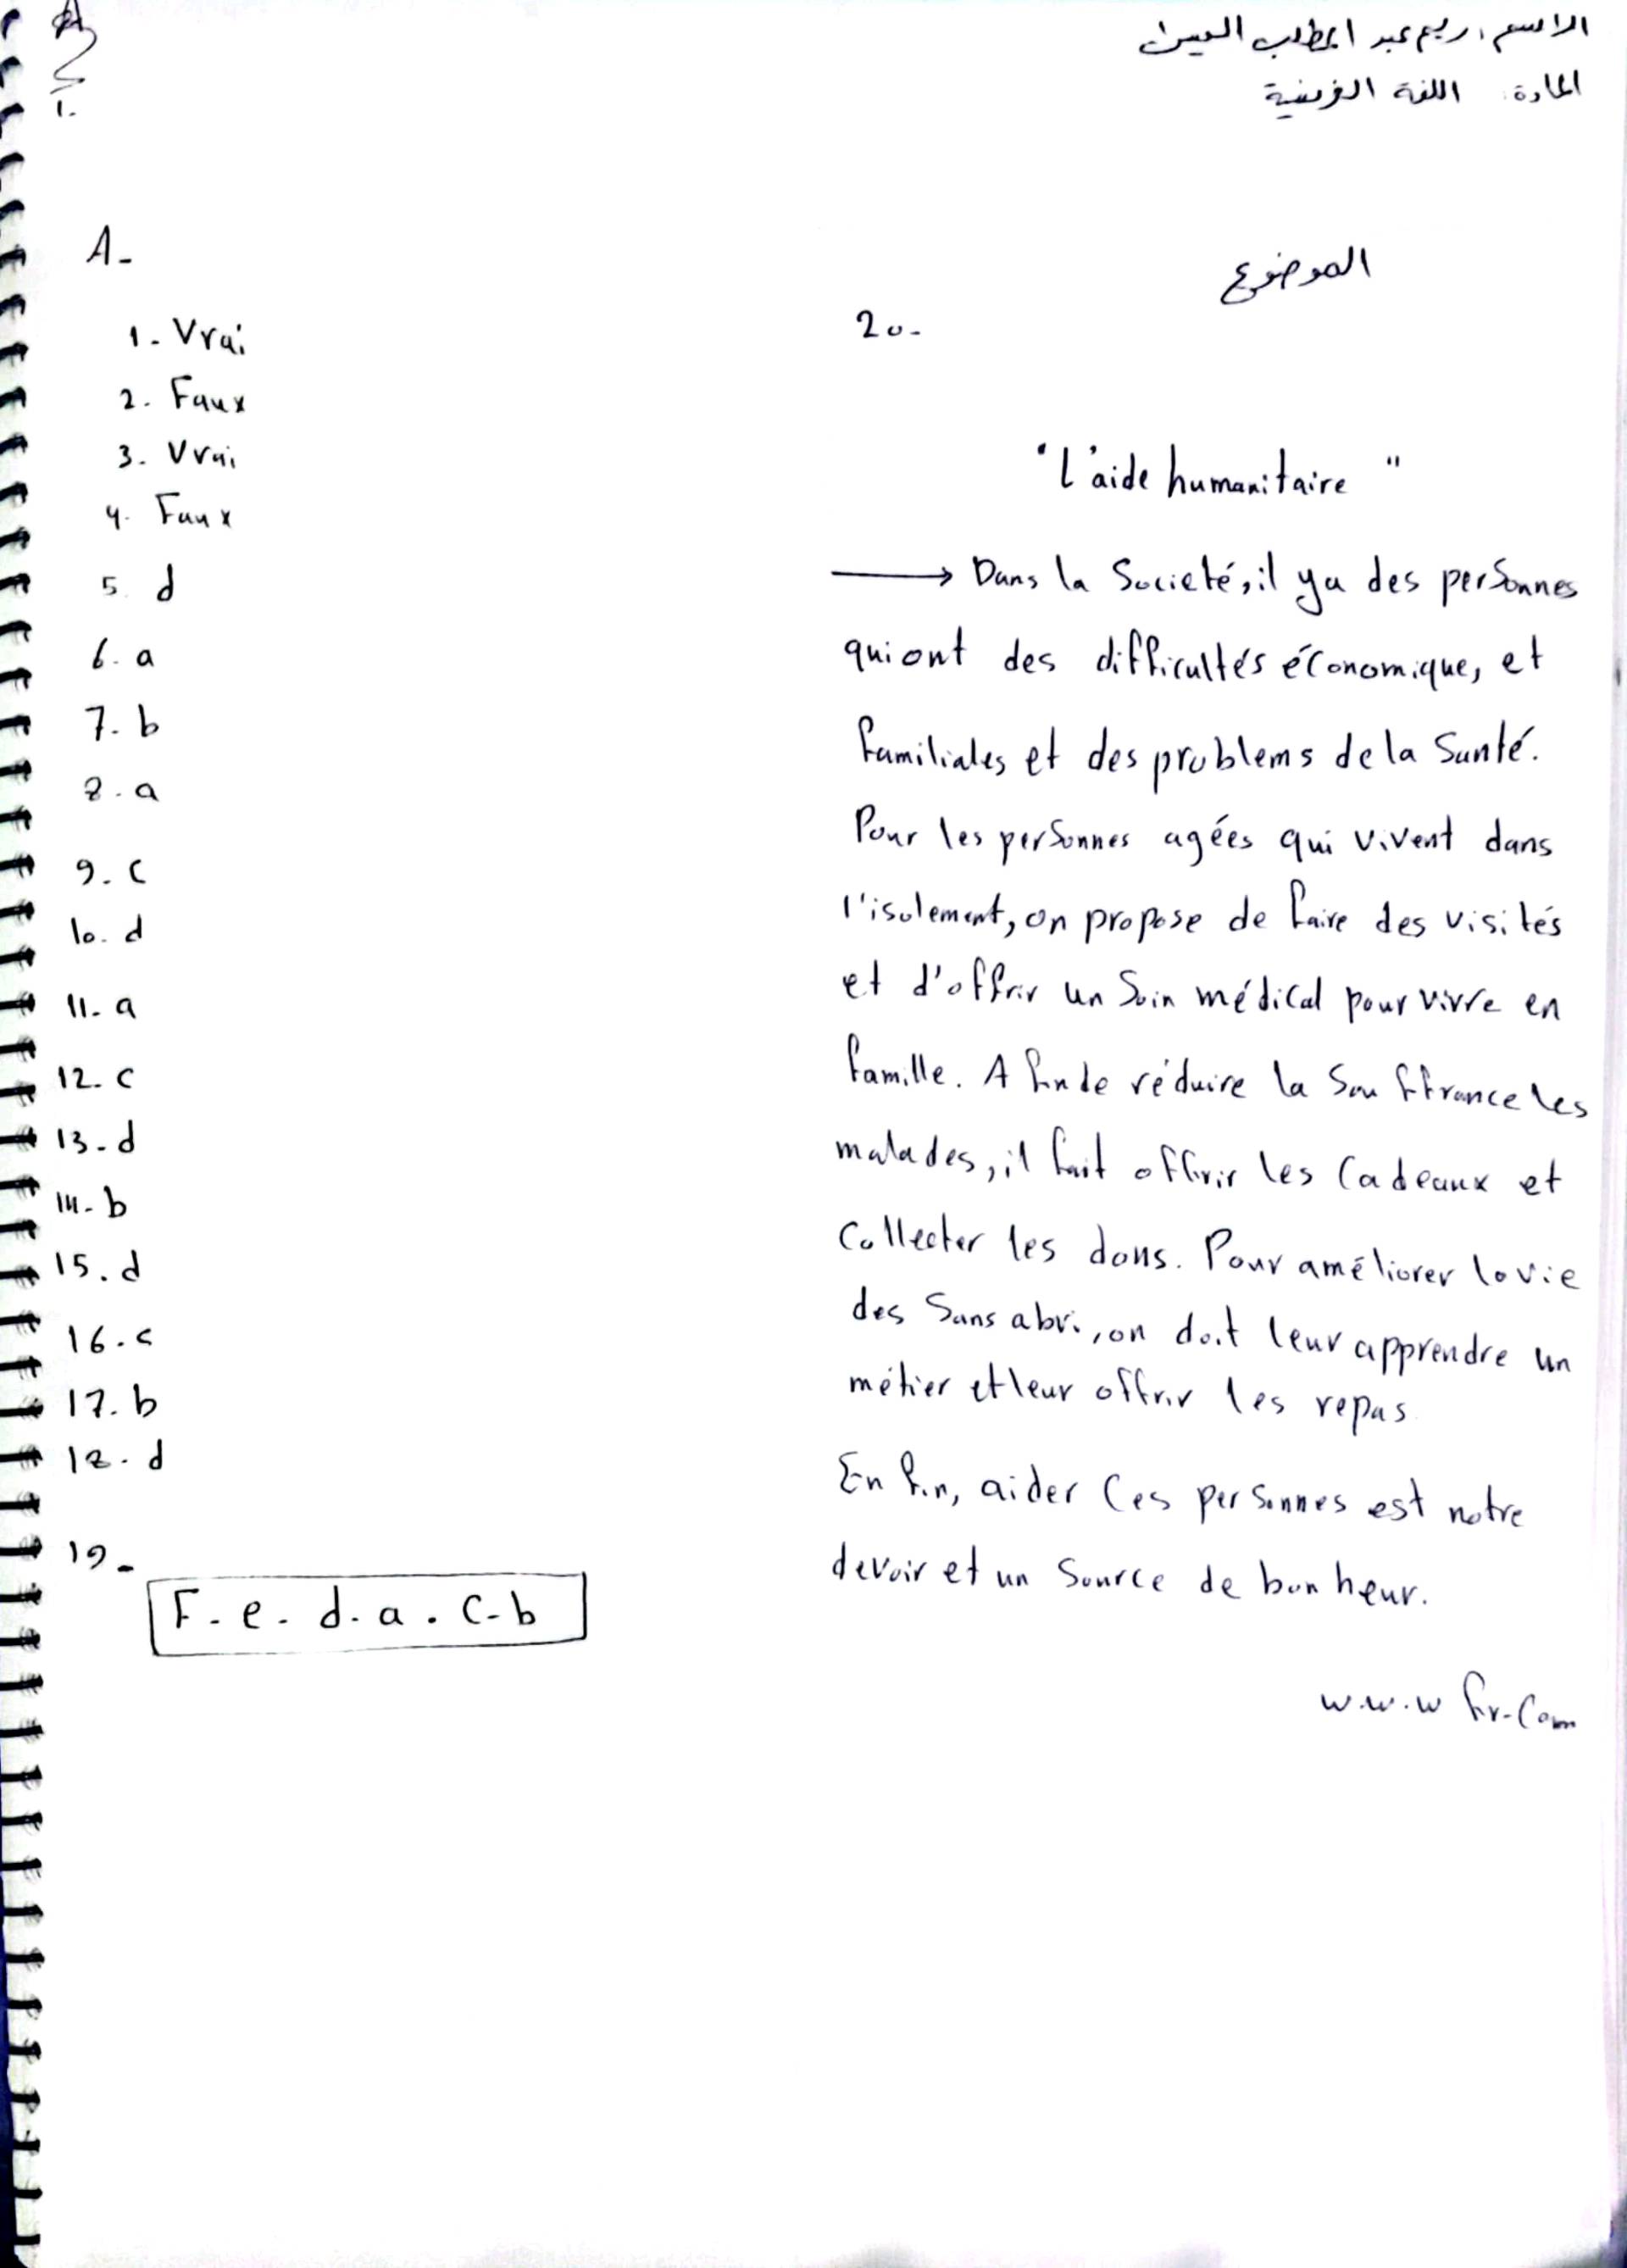 الاسم: ريم عبد المطلب
المادة: اللغة الفرنسية
A-
1- Vrai
2- Faux
3- Vrai
4- Faux
5. d
6- a
7- b
8- a
9- c
10- d
11- a
12- c
13- d
14- b
15. d
16. c
17. b
18. d
19-
F - e - d - a . C - b
الموضوع
20-
"L'aide humanitaire"
→ Dans la Societé, il ya des personnes
qui ont des difficultés économique, et
familiales et des problems de la Santé.
Pour les personnes agées qui vivent dans
l'isolement, on propose de faire des visités
et d'offrir un Soin médical pour vivre en
famille. A fin de réduire la Souffrance les
malades, il fait offrir les Cadeaux et
Collecter les dons. Pour améliorer la vie
des Sans abri, on doit leur apprendre un
métier et leur offrir les repas.
En fin, aider Ces personnes est notre
devoir et un Source de bonheur.
w.w.w fr-Com